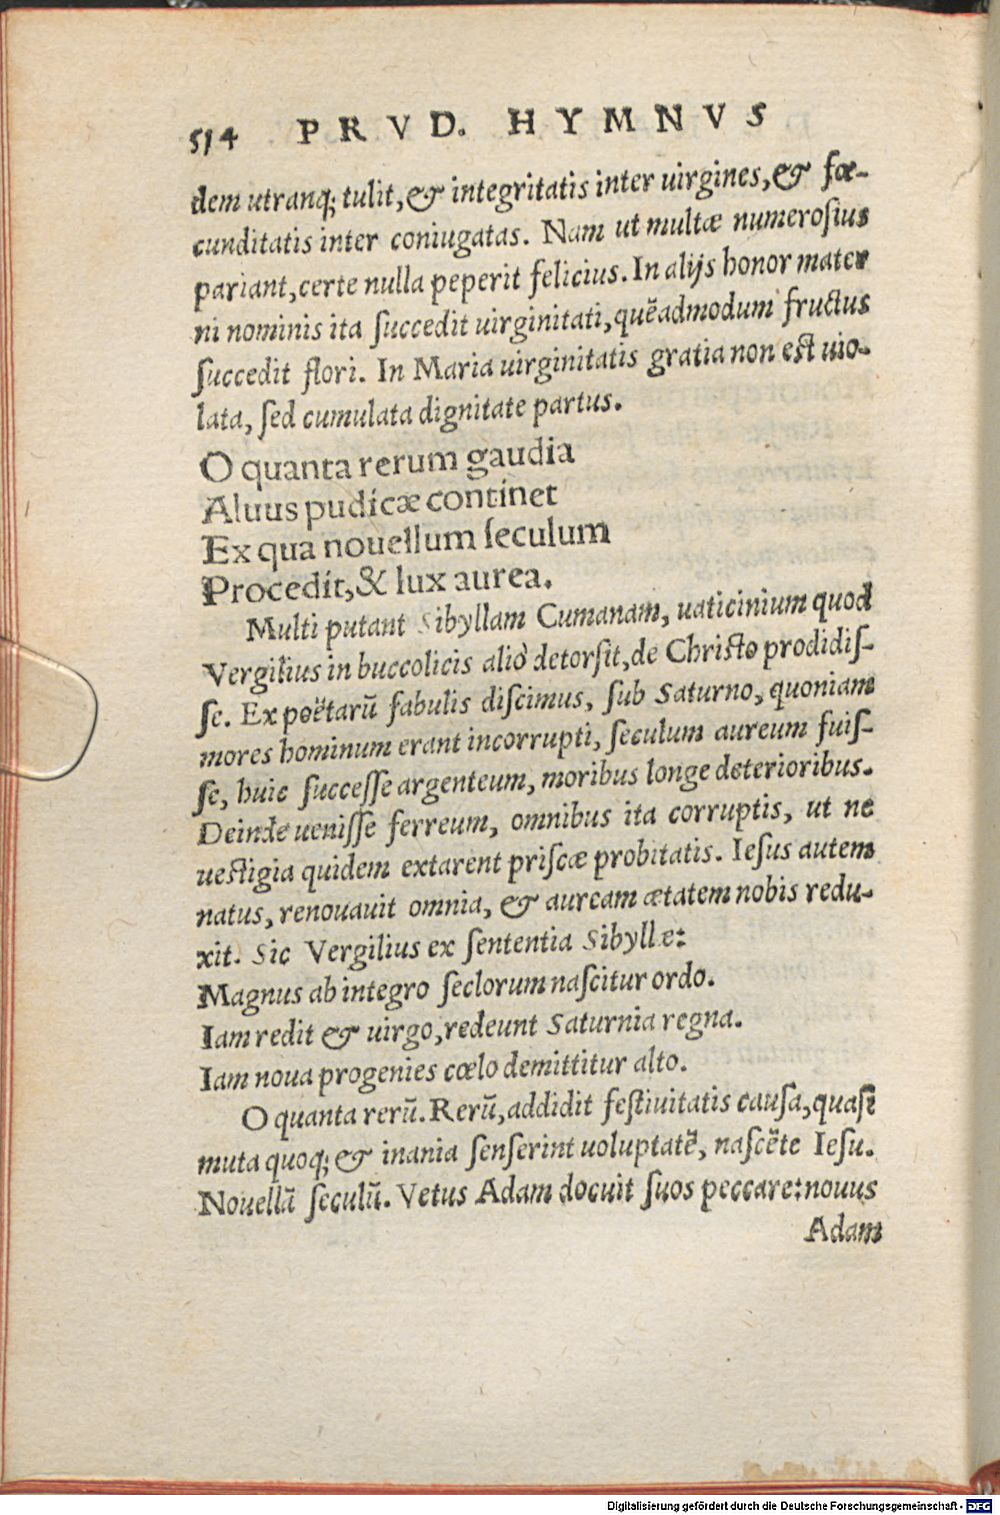 514 PRVD. HYMNVS
dem utranq; tulit, & integritatis inter uirgines, & fœ-
cunditatis inter coniugatas. Nam ut multæ numerosius
pariant, certe nulla peperit felicius. In alijs honor mater
ni nominis ita succedit uirginitati, quẽadmodum fructus
succedit flori. In Maria uirginitatis gratia non est uio-
lata, sed cumulata dignitate partus.
O quanta rerum gaudia
Aluus pudicæ continet
Ex qua nouellum seculum
Procedit, & lux aurea.
Multi putant Sibyllam Cumanam, uaticinium quod
Vergilius in buccolicis aliò detorsit, de Christo prodidis-
se. Ex poëtarũ fabulis discimus, sub Saturno, quoniam
mores hominum erant incorrupti, seculum aureum fuis-
se, huic successe argenteum, moribus longe deterioribus.
Deinde uenisse ferreum, omnibus ita corruptis, ut ne
uestigia quidem extarent priscæ probitatis. Iesus autem
natus, renouauit omnia, & auream ætatem nobis redu-
xit. Sic Vergilius ex sententia Sibyllæ:
Magnus ab integro seclorum nascitur ordo.
Iam redit & uirgo, redeunt Saturnia regna.
Iam noua progenies cœlo demittitur alto.
O quanta rerũ. Rerũ, addidit festiuitatis causa, quasi
muta quoq; & inania senserint uoluptatẽ, nascẽte Iesu.
Nouellũ seculũ. Vetus Adam docuit suos peccare: nouus
Adam
Digitalisierung gefördert durch die Deutsche Forschungsgemeinschaft - DFG